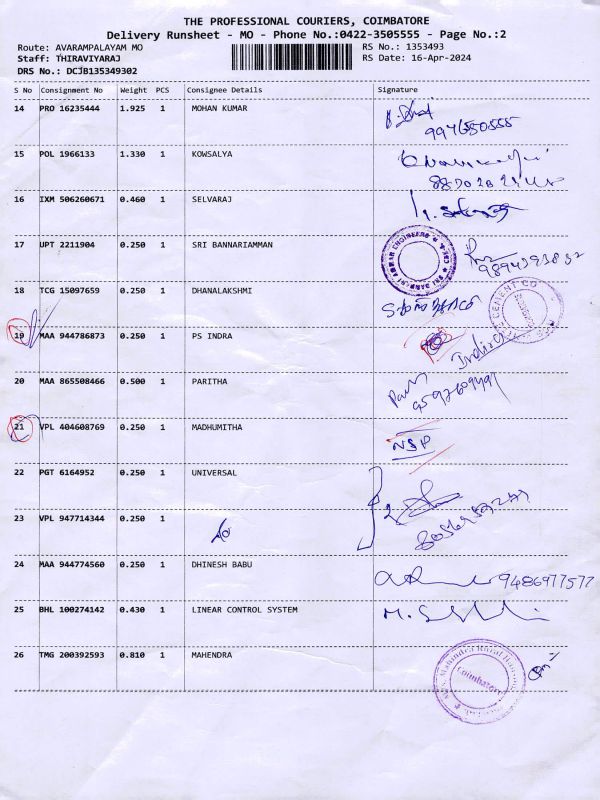 THE PROFESSIONAL COURIERS, COIMBATORE
Delivery Runsheet - MO - Phone No.:0422-3505555 - Page No.:2
Route: AVARAMPALAYAM MO RS No.: 1353493
Staff: THIRAVIYARAJ RS Date: 16-Apr-2024
DRS No.: DCJB135349302
S No Consignment No Weight PCS Consignee Details Signature
14 PRO 16235444 1.925 1 MOHAN KUMAR
15 POL 1966133 1.330 1 KOWSALYA
16 IXM 506260671 0.460 1 SELVARAJ
17 UPT 2211904 0.250 1 SRI BANNARIAMMAN
18 TCG 15097659 0.250 1 DHANALAKSHMI
CEMENT CO
19 MAA 944786873 0.250 1 PS INDRA
20 MAA 865508466 0.500 1 PARITHA
21 VPL 404608769 0.250 1 MADHUMITHA
NSP
22 PGT 6164952 0.250 1 UNIVERSAL
23 VPL 947714344 0.250 1
24 MAA 944774560 0.250 1 DHINESH BABU
9486977577
25 BHL 100274142 0.430 1 LINEAR CONTROL SYSTEM
26 TMG 200392593 0.810 1 MAHENDRA
Coimbatore